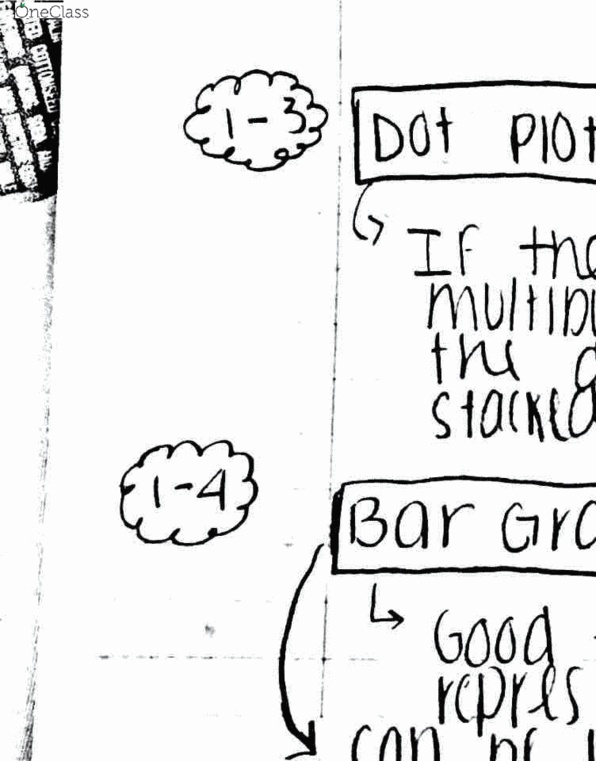 OneClass
1-3
Dot Plot
If the
multipl
the d
stacked
1-4
Bar Gra
Good
repres
can be